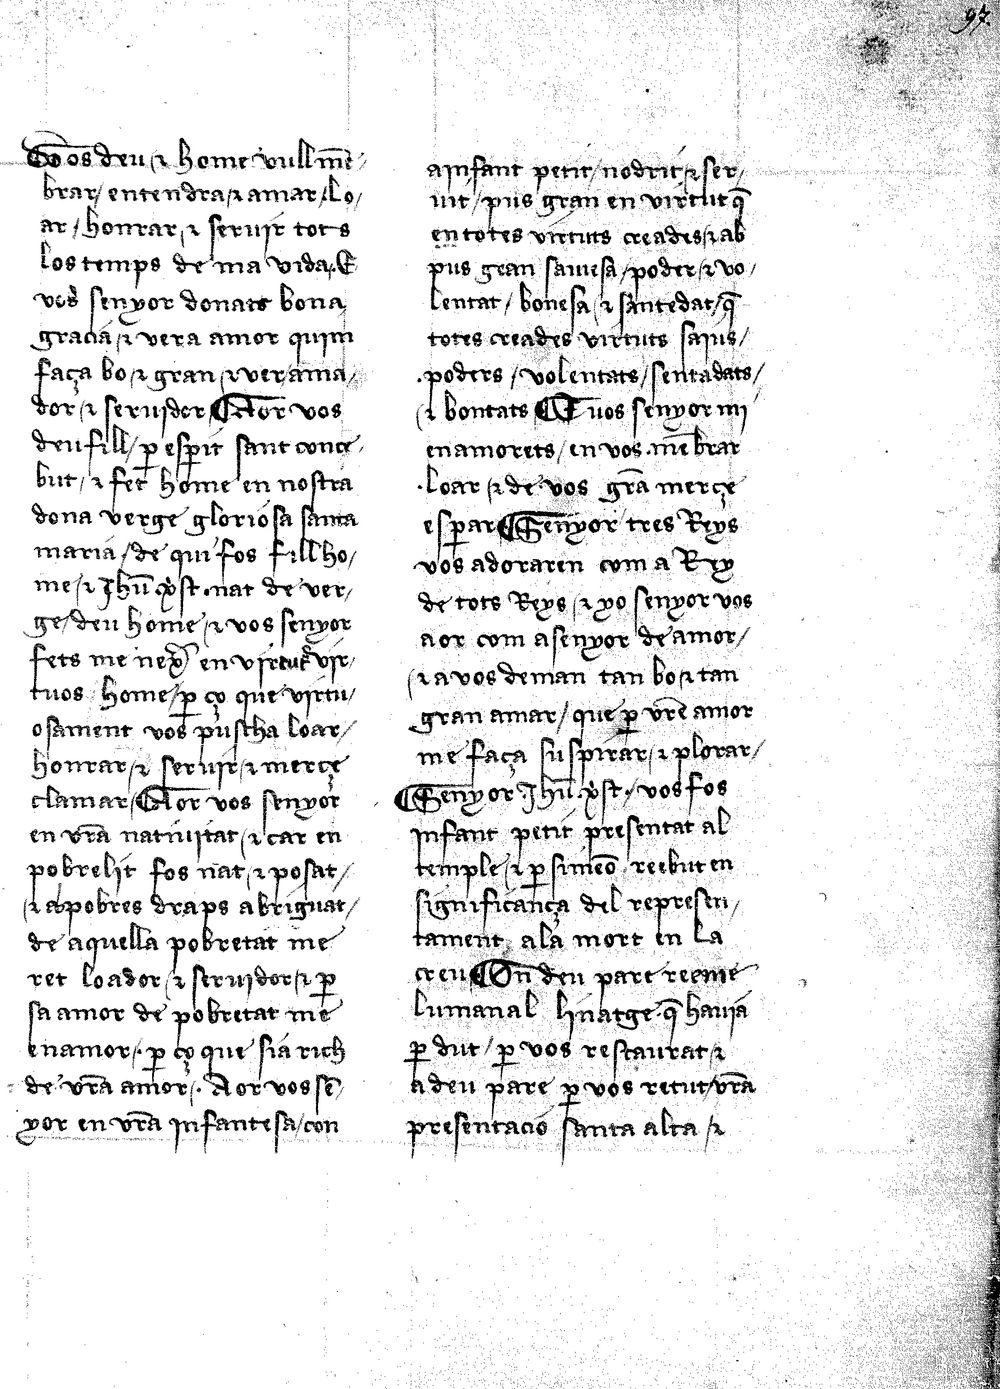 97.
Vos deu ⁊ home vull mē-
brar / entendra ⁊ amar / Lo-
ar / honrar ⁊ seruir tots
los temps de ma vida. E
vos senyor donats bona
gracia ⁊ vera amor quim
faça bo ⁊ gran ⁊ ver ama-
dor ⁊ seruidor Aor vos
deu fill / ꝑ esꝑit sant conce-
but / ⁊ fet home en nostra
dona verge gloriosa santa
maria / de qui fos fill ho-
me / ⁊ Jhū xp̄st . nat de ver-
ge / deu home / ⁊ vos senyor
fets me en virtut vir-
tuos home / ꝑ ço que virtu-
osament vos puscha loar /
honrar ⁊ seruir ⁊ merçe
clamar Aor vos senyor
en vr̄a natiuitat / ⁊ car en
pobre lit fos nat ⁊ posat /
⁊ ab pobres draps abrigat /
de aquella pobretat me
ret loador ⁊ seruidor ⁊ ꝑ
sa amor de pobretat me
enamor / . ꝑ ço que sia rich
de vr̄a amor / . Aor vos sē-
yor en vr̄a jnfantesa / con
a jnfant petit / nodrit ⁊ ser-
uit / pus gran en virtut q̄
en totes virtuts creades ⁊ ab
pus gran sauiesa / poder / ⁊ vo-
lentat / bonesa ⁊ santedat / q̄
totes creades virtuts saiuis /
poders / volentats / sentadats /
⁊ bontats E uos senyor mi
enamorets / en vos . mēbrar
. loar ⁊ de vos grā merçe
esꝑar Senyor tres Reys
vos adoraren com a Rey
de tots Reys / ⁊ yo senyor vos
aor com a senyor de amor /
⁊ a vos deman tan bo ⁊ tan
gran amar / que ꝑ vr̄e amor
me faça suspirar / ⁊ plorar /
Senyor Jhū xp̄st . / vos fos
jnfant petit presentat al
temple / ⁊ ꝑ simeō reebut en
significança del represen-
tament a la mort en La
creu On deu pare reeme
lumanal linatge . q̄ hauia
ꝑdut / ꝑ vos restaurat ⁊
a deu pare ꝑ vos retut / vr̄a
presentacio santa alta / ⁊